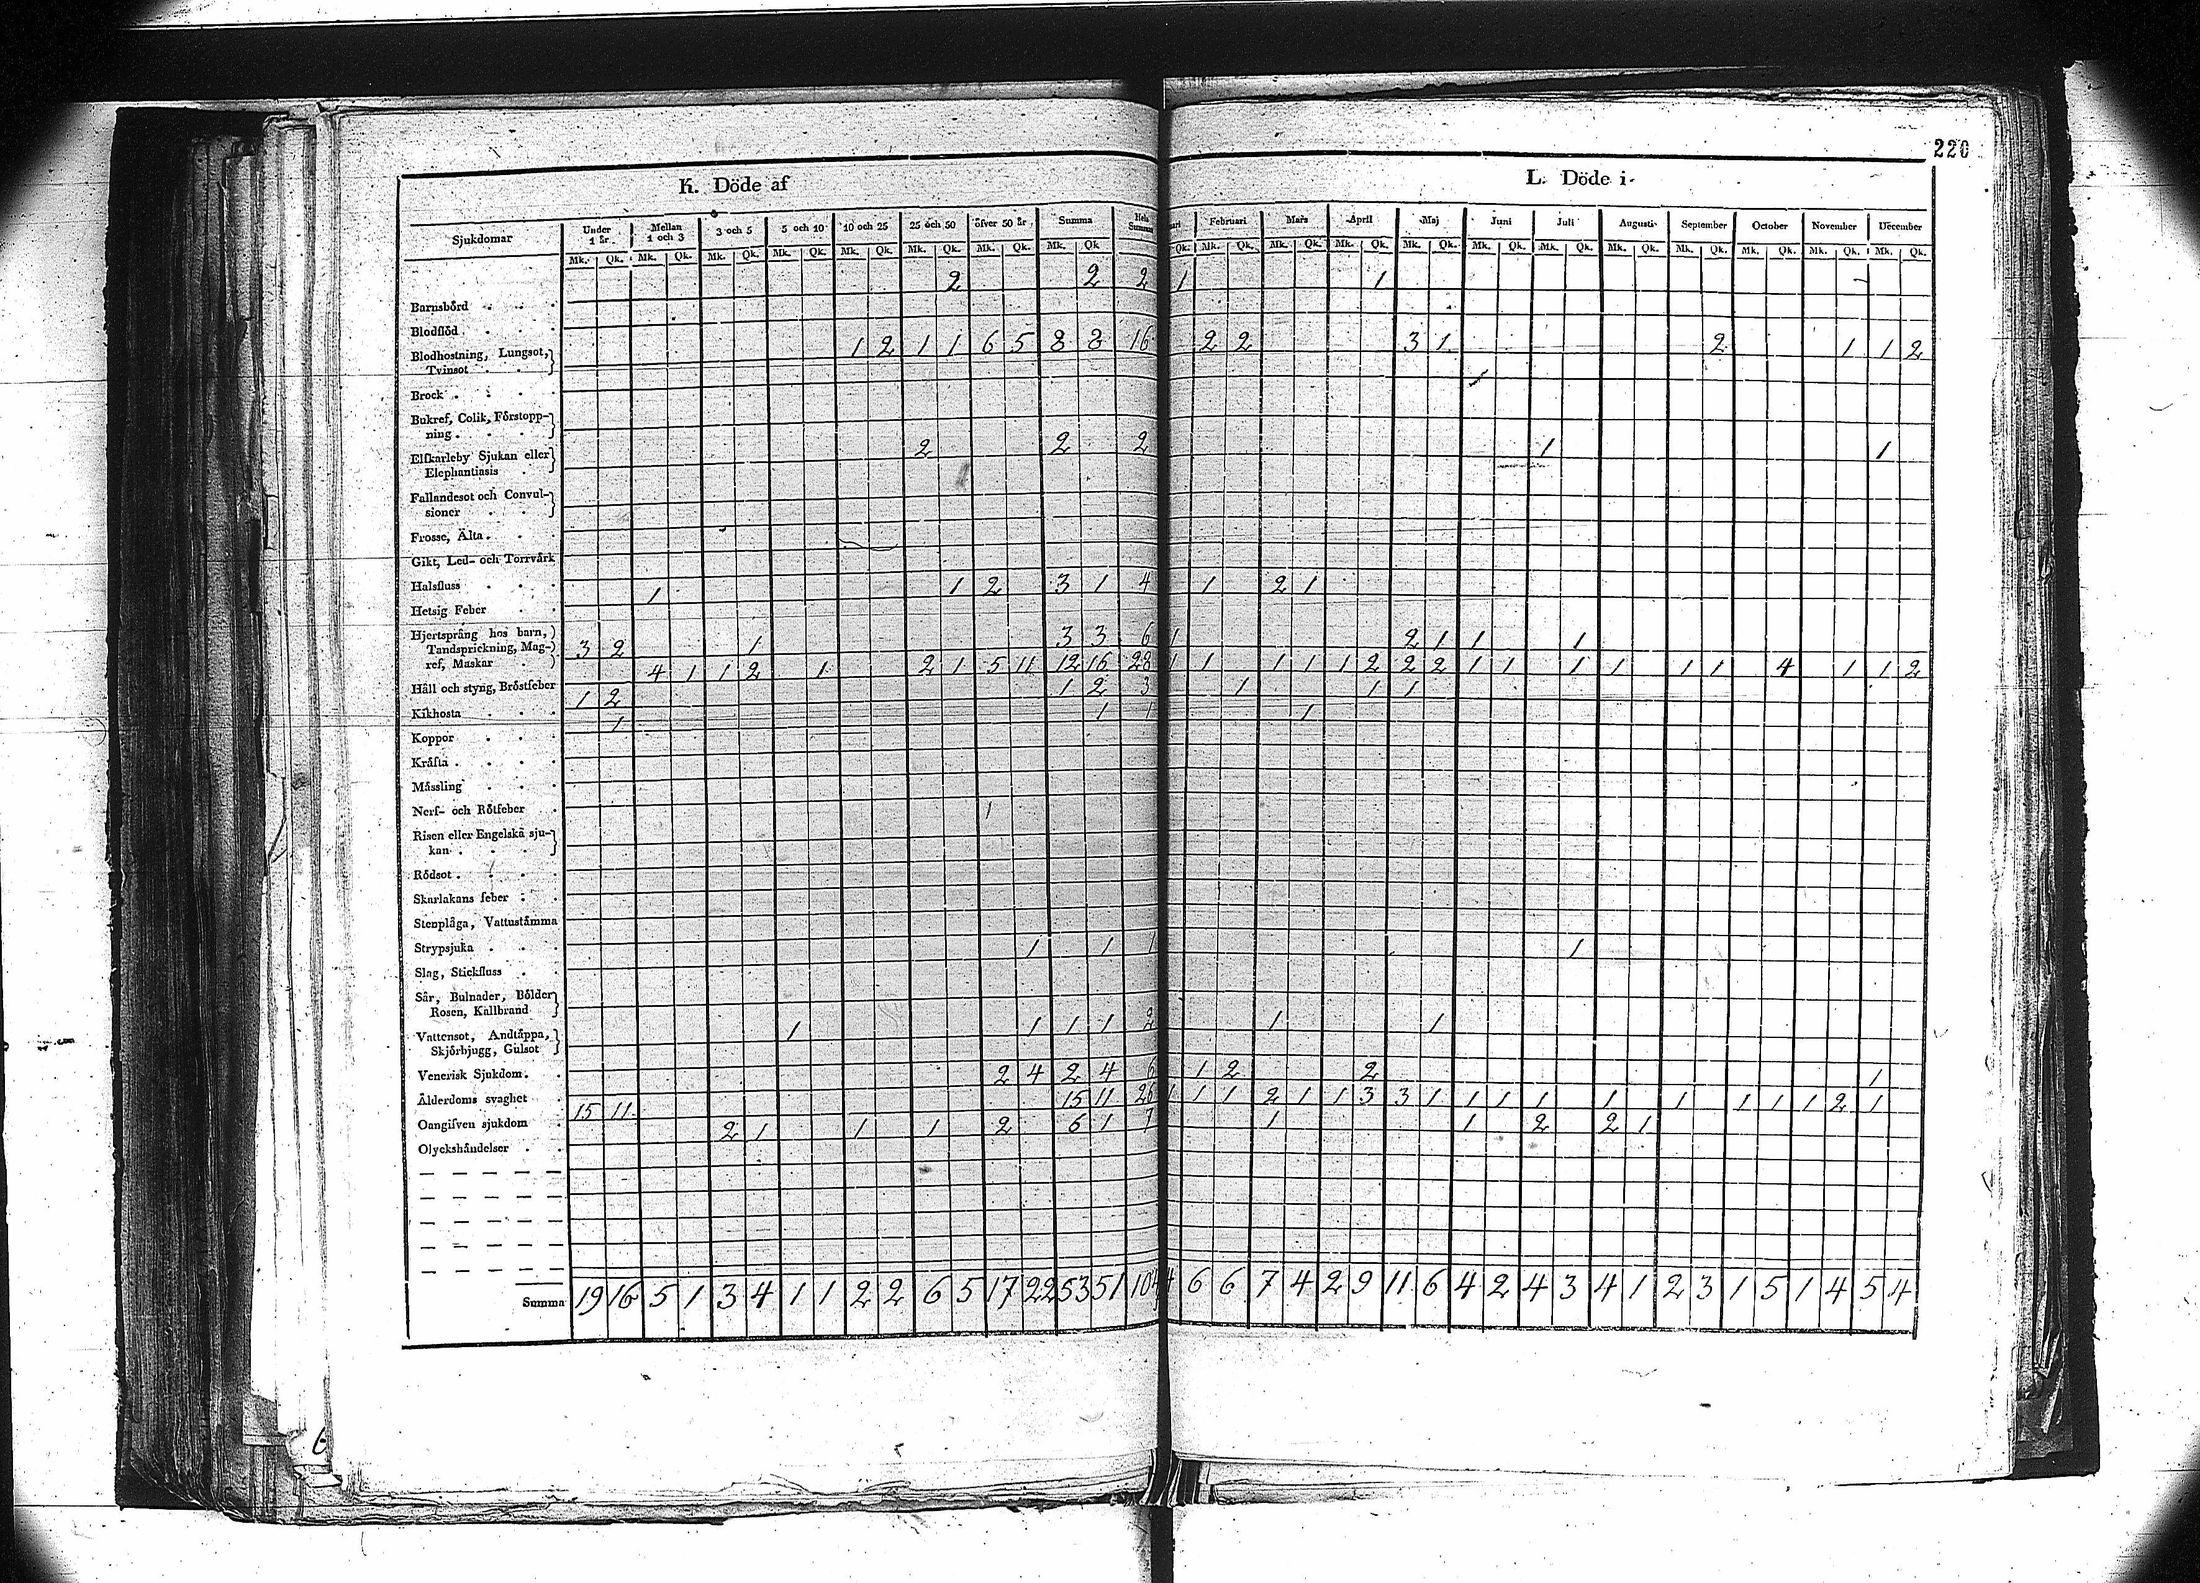 220
K. Döde af
L. Döde i
Sjukdomar Under 1 år. Mellan 1 och 3 3 och 5 5 och 10 10 och 25 25 och 50 öfver 50 år Summa Hela Summan Februari Mars April Maj Juni Juli Augusti September October November December
Mk. Qk. Mk. Qk. Mk. Qk. Mk. Qk. Mk. Qk. Mk. Qk. Mk. Qk. Mk. Qk Qk. Mk. Qk. Mk. Qk. Mk. Qk. Mk. Qk. Mk. Qk. Mk. Qk. Mk. Qk. Mk. Qk. Mk. Qk. Mk. Qk. Mk. Qk.
2 2 2 1 1
Barnsbörd
Blodflöd
1 2 1 1 6 5 8 8 16 2 2 3 1 2 1 1 2
Blodhostning, Lungsot,
Tvinsot
Brock
Bukref, Colik, Förstopp-
ning
2 2 2 1 1
Elfkarleby Sjukan eller
Elephantiasis
Fallandesot och Convul-
sioner
Frosse, Älta
Gikt, Led- och Torrvärk
Halsfluss
1 1 2 3 1 4 1 2 1
Hetsig Feber
Hjertsprång hos barn,
Tandsprickning, Mag-
ref, Maskar
3 2 1 3 3 6 1 2 1 1 1
4 1 1 2 1 2 1 5 11 12 16 28 1 1 1 1 1 2 2 2 1 1 1 1 1 1 4 1 1 2
Håll och styng, Bröstfeber
1 2 1 2 3 1 1 1
Kikhosta
1 1 1 1
Koppor
Kräfta
Mässling
Nerf- och Rötfeber
1
Risen eller Engelska sju-
kan
Rödsot
Skarlakans feber
Stenplåga, Vattustämma
Strypsjuka
1 1 1 1
Slag, Stickfluss
Sår, Bulnader, Bölder
Rosen, Kallbrand
1 1 1 1 2 1 1
Vattensot, Andtäppa,
Skjörbjugg, Gulsot
Venerisk Sjukdom
2 4 2 4 6 1 2 2 1
Ålderdoms svaghet
15 11 15 11 26 1 1 1 2 1 1 3 3 1 1 1 1 1 1 1 1 1 2 1
Oangifven sjukdom
2 1 1 1 2 6 1 7 1 1 2 2 1
Olyckshändelser
Summa 19 16 5 1 3 4 1 1 2 2 6 5 17 22 53 51 104 4 6 6 7 4 2 9 11 6 4 2 4 3 4 1 2 3 1 5 1 4 5 4
6